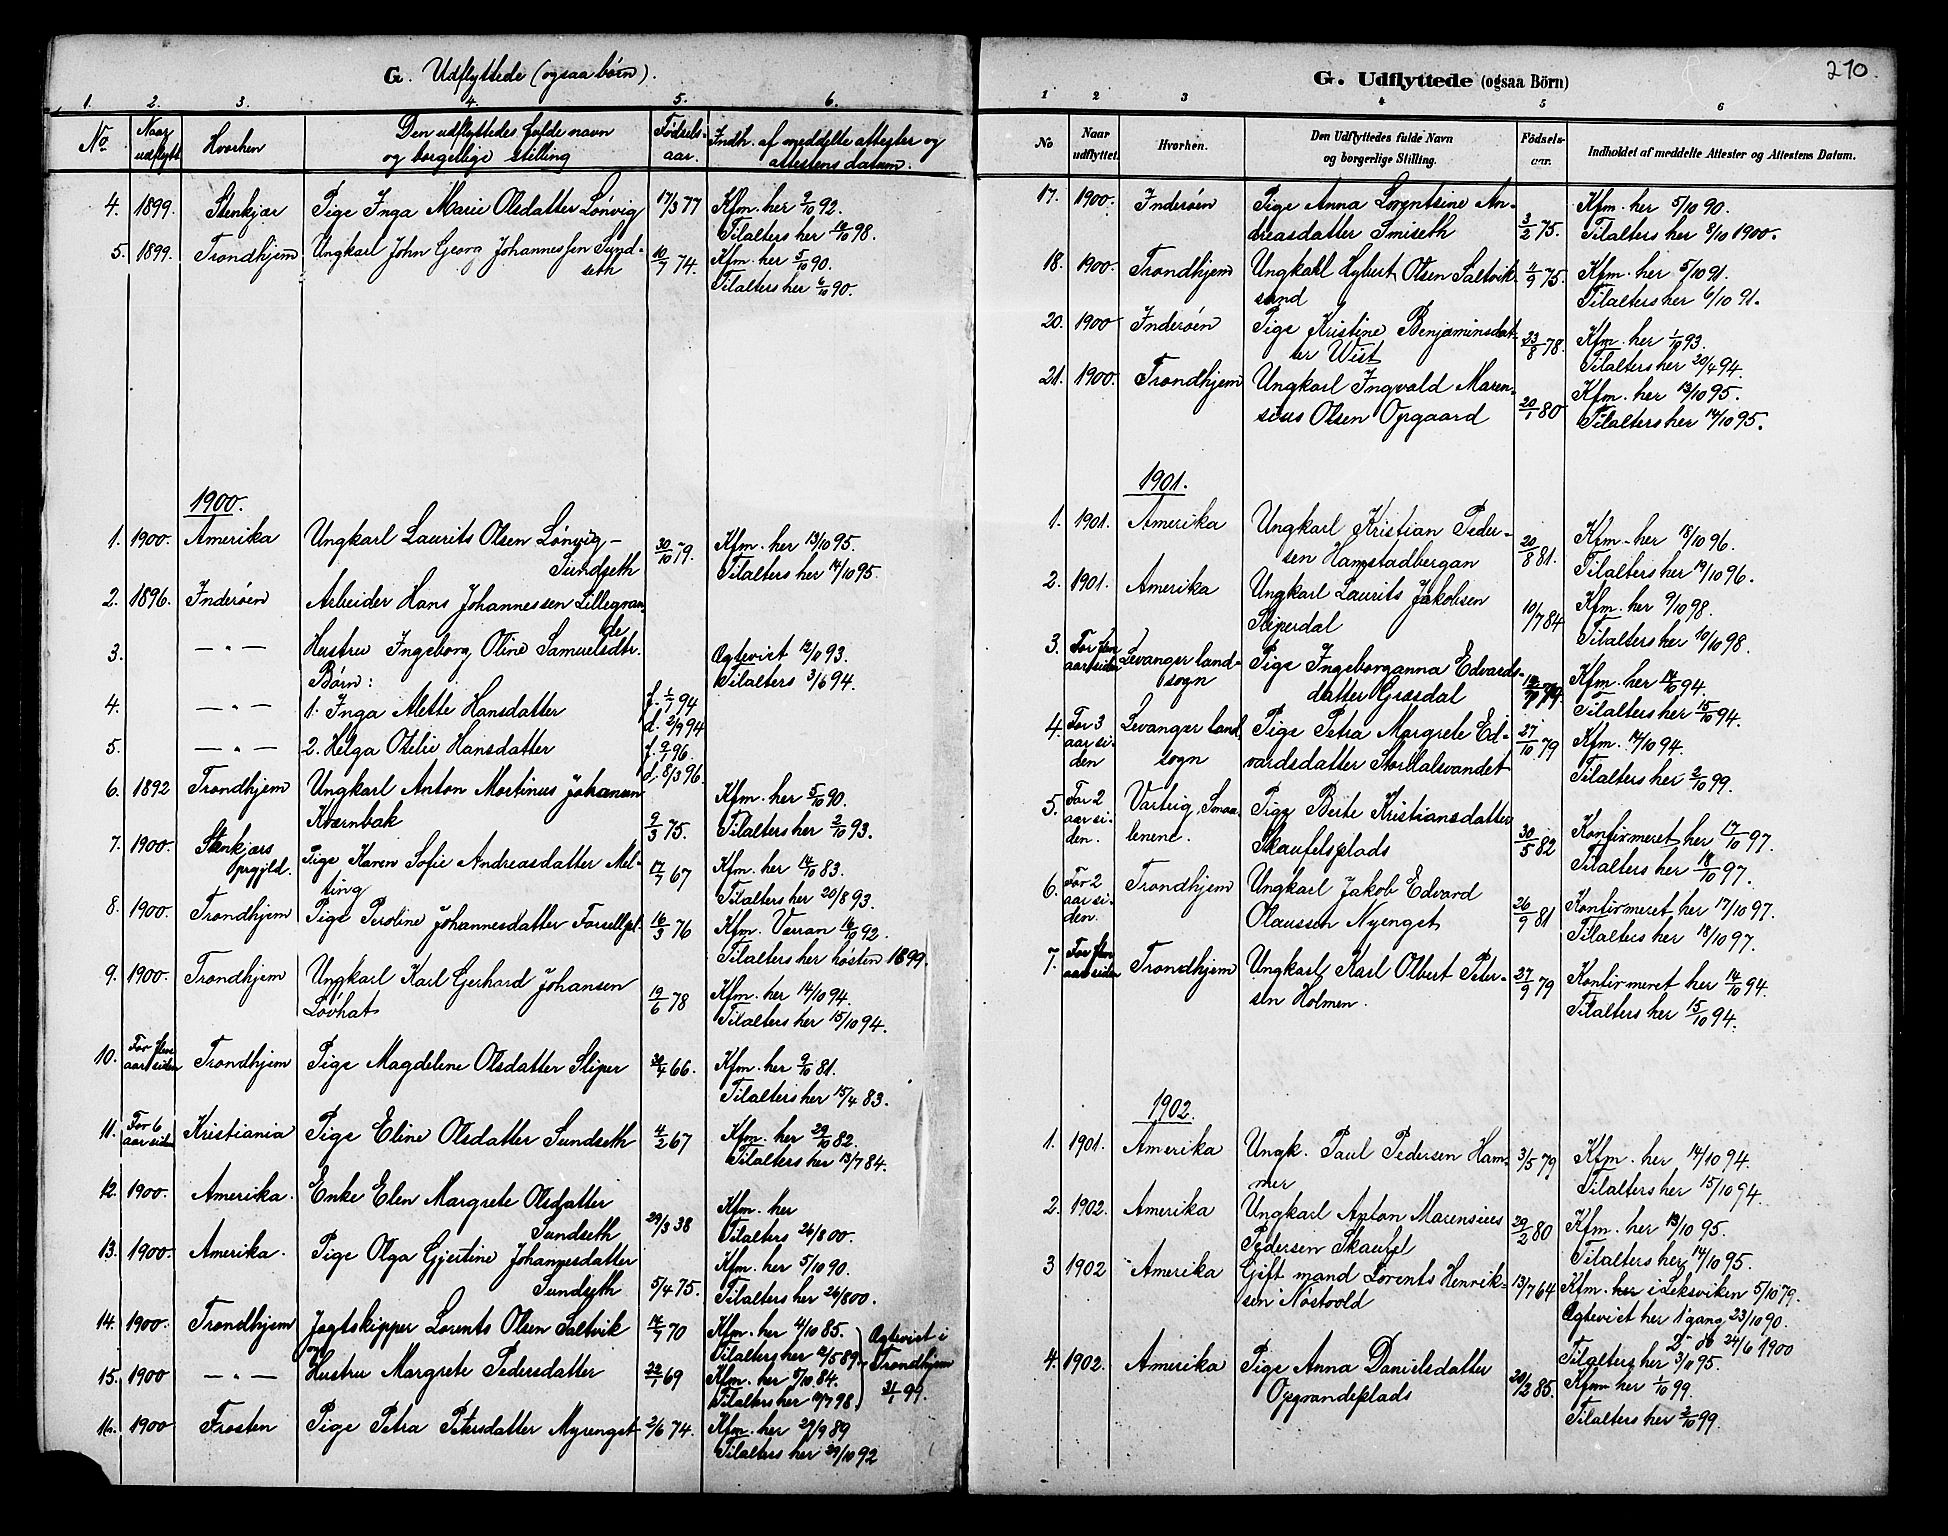 G. Udflyttede (ogsaa børn).
1. 2. 3. 4. 5. 6.
No. Naar udflytt Hvorhen Den udflyttedes fulde navn og borgerlige stilling Fødsels-aar. Indh. af meddelte attester og attestens datum.
4. 1899. Stenkjær Pige Inga Marie Olsdatter Lønvig 17/3 77 Kfm. her 2/10 92.
Tilalters her 10 98.
5. 1899. Trondhjem Ungkarl John Georg Johannessen Sund- 10/7 74. Kfm. her 5/10 90.
seth Tilalters her 6/10 90.
1900.
1. 1900. Amerika Ungkarl Laurits Olsen Lønvig- 30/10 79. Kfm. her 13/10 95.
Sundseth Tilalters her 14/10 95.
2. 1896. Inderøen Arbeider Hans Johannessen Lillegran-
de
3. — " — Hustru Ingeborg Oline Samuelsdtr. Ægteviet 12/11 93.
Børn: Tilalters 3/6 94.
4. — " — 1. Inga Alette Hansdatter f. 1/7 94
d. 2/9 94
5. — " — 2. Helga Otelie Hansdatter f. 2/ 96.
d. 8/3 96.
6. 1892 Trondhjem Ungkarl Anton Martinus Johansen Kfm. her 5/10 90.
Kværnbak 9/3 75. Tilalters her 2/10 93.
7. 1900. Stenkjærs Pige Karen Sofie Andreasdatter Mel- 17/7 67 Kfm. her 14/10 83.
Oprgjld. ting Tilalters her 20/8 93.
8. 1900. Trondhjem Pige Peroline Johannesdatter Forsellpl. 16/3 76 Kfm. Verran 16/10 92.
Tilalters her høsten 1899.
9. 1900. Trondhjem Ungkarl Karl Gerhard Johansen 19/6 78 Kfm. her 14/10 94.
Løvhat Tilalters her 15/10 94.
10. For flere Trondhjem Pige Magdelene Olsdatter Sliper 30/4 66. Kfm. her 9/10 81.
aar siden Tilalters her 15/4 83.
11. For 6 Kristiania Pige Eline Olsdatter Sundseth 4/2 67 Kfm. her 29/10 82.
aar siden Tilalters her 13/7 84.
12. 1900. Amerika. Enke Elen Margrete Olsdatter Kfm. her
Sundseth 29/3 38 Tilalters 26/8 00.
13. 1900. Amerika. Pige Olga Gjertine Johannesdatter Kfm. her 5/10 90.
Sundseth 5/4 75. Tilalters her 26/8 00.
14. 1900. Trondhjem Jagtskipper Lorents Olsen Saltvik 14/7 70 Kfm. her 4/10 85. Ægteviet i
og Tilalters her 12/5 89. Trondhjem
15. 1900 — " — Hustru Margrete Pedersdatter 22/1 69 Kfm. her 5/10 84. 31/1 99.
Tilalters her 10/7 98
16. 1900 Frosten Pige Petra Petersdatter Myrenget 2/6 74. Kfm. her 29/9 89
Tilalters her 29/10 92
270.
G. Udflyttede (ogsaa Börn)
1 2 3 4 5 6
No Naar udflyttet. Hvorhen. Den Udflyttedes fulde Navn og borgerlige Stilling. Födsels-aar. Indholdet af meddelte Attester og Attestens Datum.
17. 1900. Inderøen Pige Anna Lorentsine An- Kfm. her 5/10 90.
dreasdatter Smiseth 3/2 75. Tilalters her 8/10 1900.
18. 1900. Trondhjem Ungkarl Hybert Olsen Saltvik- 11/9 75. Kfm. her 5/10 91.
sand Tilalters her 6/10 91.
20. 1900 Inderøen Pige Kristine Benjaminsdat- 23/8 78. Kfm. her 1/10 93.
ter Wist Tilalters her 20/4 94.
21. 1900. Trondhjem Ungkarl Ingvald Maren- Kfm. her 13/10 95.
sius Olsen Opgaard 20/1 80 Tilalters her 14/10 95.
1901.
1. 1901. Amerika Ungkarl Kristian Peder- 20/8 81. Kfm. her 18/10 96.
sen Hamstadbergan Tilalters her 19/10 96.
2. 1901. Amerika Ungkarl Laurits Jakobsen 10/7 84 Kfm. her 9/10 98.
Sliperdal Tilalters her 10/10 98.
3. For flere Levanger land- Pige Ingeborganna Edvards- Kfm. her 14/10 94.
aar siden sogn datter Græsdal Tilalters her 15/10 94.
4. For 3 Levanger land Pige Petra Margrete Ed- 27/10 79 Kfm. 14/10 94.
aar si-den sogn vardsdatter Stordalsvandet Tilalters her 2/10 99.
5. For 2 Varteig, Smaa- Pige Berte Kristiansdatter 30/5 82 Konfirmeret her 17/10 97.
aar si-den. lenene. Skaufelsplads Tilalters her 18/10 97.
6. For 2 Trondhjem Ungkarl Jakob Edvard 26/9 81 Konfirmeret her 17/10 97.
aar si-den. Olaussen Nyenget Tilalters her 18/10 97.
7. For flere Trondhjem Ungkarl Karl Olbert Peter- 27/9 79 Konfirmeret her 14/10 94.
aar siden sen Holmen. Tilalters her 15/10 94.
1902.
1. 1901. Amerika Ungk. Paul Pedersen Ham- 3/5 79 Kfm. her 14/10 94.
mer Tilalters her 15/10 94.
2. 1902. Amerika Ungkarl Anton Marensius 29/2 80 Kfm. her 13/10 95.
Pedersen Skaufel Tilalters her 14/10 95.
3 1902 Amerika Gift mand Lorents Henrik- 13/7 64 Kfm. her i Leksviken 5/10 79.
sen Nøstvold Ægteviet her 1 gang 23/10 90.
D° 24/6 1900
Tilalters her 3/11 95.
4. 1902. Amerika Pige Anna Danielsdatter 20/2 85. Kfm her 1/10 99.
Opgrandeplads Tilalters her 2/10 99.